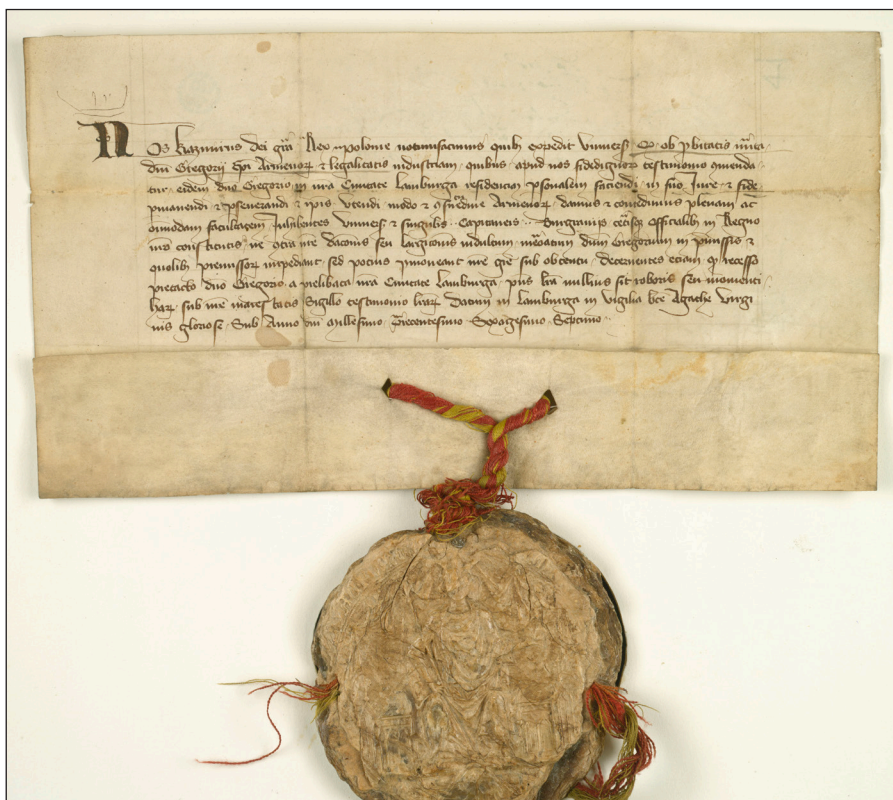 Nos Kazimirus dei gra Rex Polonie notumfacimus quib expedit Vniuersis Q ob pbitatis mita
dni Gregorij Epi Armenor et legalitatis industriam quibus apud nos fidedignor testimonio omenda
tur eidem dno Gregorio in nra Ciuitate Lamburga residenciam psonalem faciendi in suo Jure et fide
pmanendi et pseuerandi et ipis vtendi modo et ofuetudine Armenor damus et concedimus plenam ac
omodam facultatem Inhibentes Vniuersis et singulis Capitaneis Burgrauijs cetisq Officialib in Regno
nro constitutis ne otra nre dacois seu largicionis indultum meoratum dnm Gregorium in pmissis et
quolib premissor impediant sed pocius pmoueant nre gre sub obtentu decernentes eciam q recesso
pretacto dno Gregorio a prelibata nra Ciuitate Lamburga pns lra nullius sit roboris seu momenti
har sub nre maiestatis Sigillo testimonio lrar Datum in Lamburga in vigilia bte Agathe virgi
nis gloriose Sub Anno dni Millesimo Trecentesimo Sexagesimo Septimo